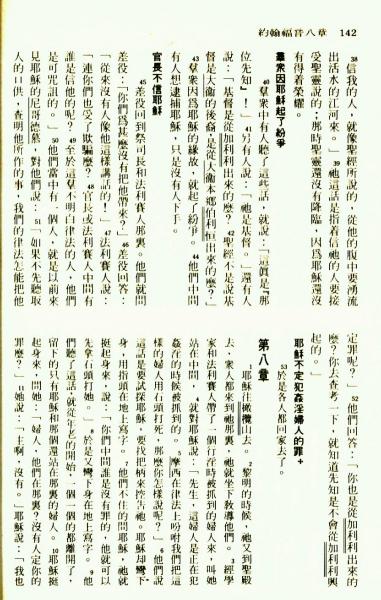 約翰福音八章 142
38信我的人，就像聖經所說的，從他的腹中要湧流
出活水的江河來。』39祂這話是指着信祂的人要接
受聖靈說的；那時聖靈還沒有降臨，因爲耶穌還沒
有得着榮耀。
羣衆因耶穌起了紛爭
40羣衆中有人聽了這些話，就說：「這眞是『那
位先知』！」41另有人說：「祂是基督。」還有人
說：「基督是從加利利出來的麼？42聖經不是說基
督是大衞的後裔，是從大衞本鄉伯利恒出來的麼？」
43羣衆因爲耶穌的緣故，就起了紛爭。44他們中間
有人想逮捕耶穌，只是沒有人下手。
官長不信耶穌
45差役回到祭司長和法利賽人那裏。他們就問
差役：「你們爲甚麼沒有把他帶來？」46差役回答：
「從來沒有人像他這樣講話的！」47法利賽人說：
「連你們也受了欺騙麼？48官長或法利賽人中間有
誰是信他的呢？49至於這羣不明白律法的人，他們
是可咒詛的。」50他們當中有一個人，就是以前來
見耶穌的尼哥德慕，對他們說：51「如果不先聽取
人的口供，查明他所作的事，我們的律法怎能把他
定罪呢？」52他們回答：「你也是從加利利出來的
麼？你去查考一下，就知道先知是不會從加利利興
起的。」
耶穌不定犯姦淫婦人的罪＋
53於是各人都回家去了。
第八章
耶穌往橄欖山去。2黎明的時候，祂又到聖殿
去，衆人都來到祂那裏，祂就坐下敎導他們。3經學
家和法利賽人帶了一個行淫時被抓到的婦人來，叫她
站在中間，4就對耶穌說：「先生，這婦人是正在犯
姦淫的時候被抓到的。5摩西在律法上吩咐我們把這
樣的婦人用石頭打死，那麼你怎樣說呢？」6他們說
這話是要試探耶穌，要找把柄來控告祂。耶穌却彎下
身，用指頭在地上寫字。7他們不住的問耶穌，祂就
挺起身來，說：「你們中間誰是沒有罪的，他就可以
先拿石頭打她。」8於是又彎下身在地上寫字。9他
們聽了這話，就從年老的開始，一個一個的都離開了，
留下的只有耶穌和那個還站在那裏的婦人。10耶穌挺
起身來，問她：「婦人，他們在那裏？沒有人定你的
罪麼？」11她說：「主啊，沒有。」耶穌說：「我也